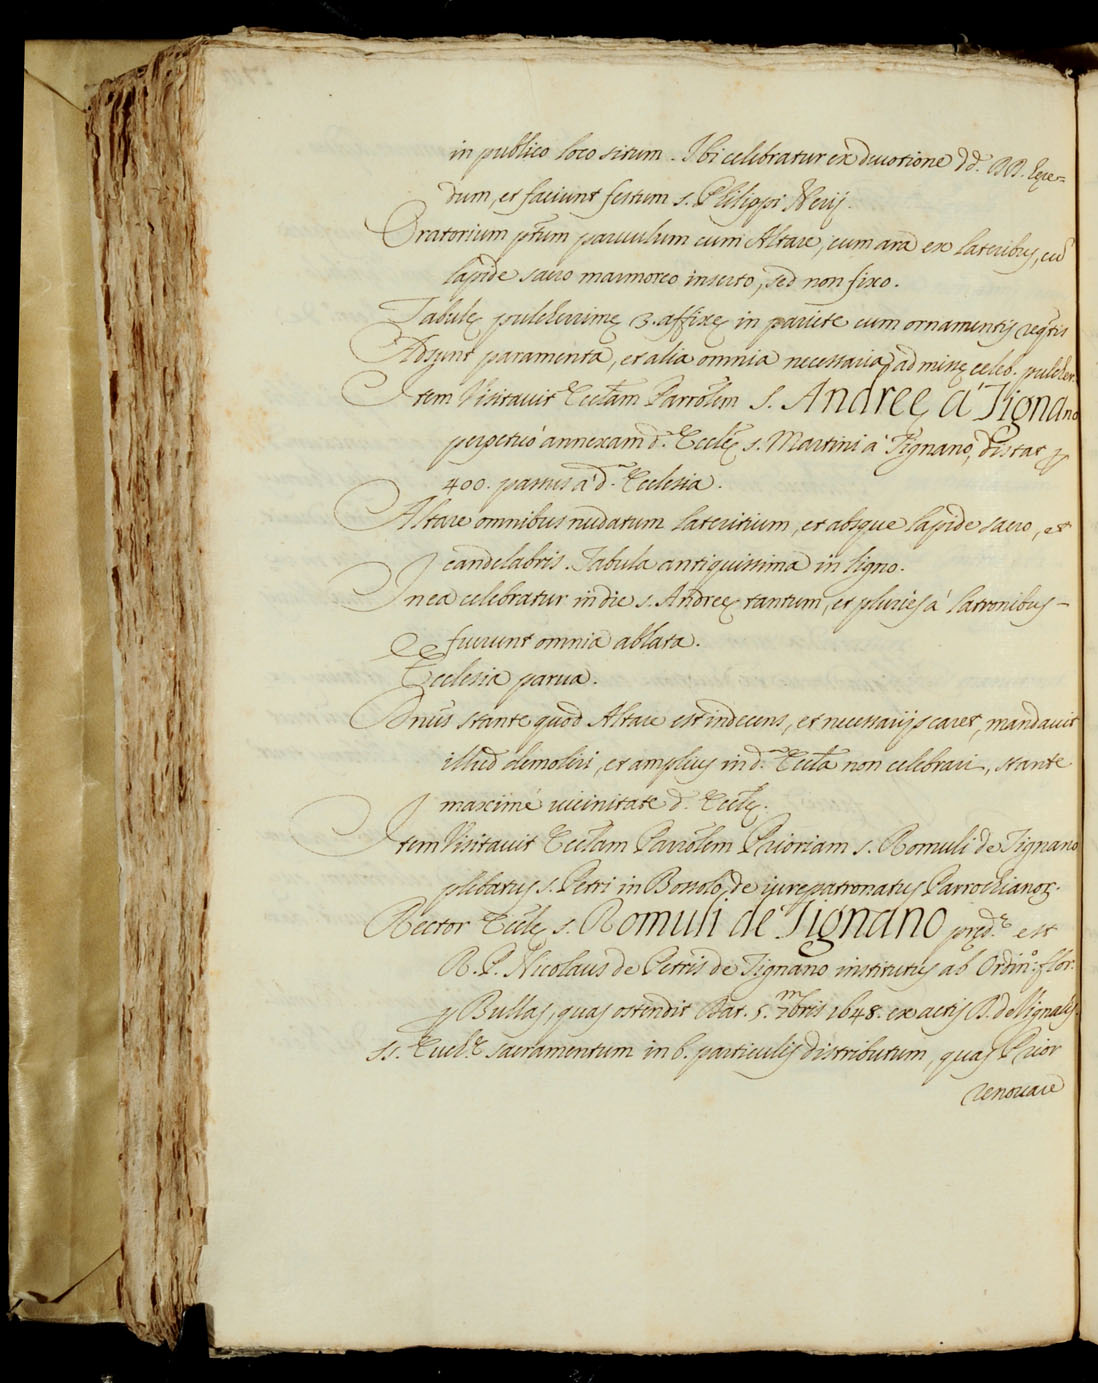 in publico loco situm. Ibi celebratur ex deuotione dd. RR. Eque=
dum, et faciunt festum s. Philippi Nerij.
Oratorium ptum paruulum cum Altare, cum ara ex lateribus, cū
lapide sacro marmoreo inserto, sed non fixo.
Tabulę pulcherrimę 3. affixę in pariete cum ornamentis reqtis
Adsunt paramenta, et alia omnia necessaria ad missę celeb. pulcher.
Item Visitauit Ecclam Parrolem S. Andreę à Tignano
perpetuò annexam d. Ecclę s. Martini à Tignano, distat p
400. passus à d. Ecclesia.
Altare omnibus nudatum lateritium, et absque lapide sacro, et
candelabris. Tabula antiquissima in ligno.
In ea celebratur in die s. Andreę tantum, et pluries à latronibus -
fuerunt omnia ablata.
Ecclesia parua.
Dnus stante quod Altare est indecens, et necessarijs caret, mandauit
illud demoliri, et amplius in d. Eccla non celebrari, stante
maximè uicinitate d. Ecclę.
Item Visitauit Ecclam Parrolem Prioriam s. Romuli de Tignano
plebatus s. Petri in Bossolo, de iurepatronatus Parrochianoꝝ.
Rector Ecclę s. Romuli de Tignano prędę est
R. P. Nicolaus de Petris de Tignano institutus ab Ordino. flor.
p Bullas, quas ostendit Dat. 5. 7mbris 1648. ex actis D. de Vignalis.
ss. Euch.e sacramentum in 6. particulis distributum, quas Prior
renouare